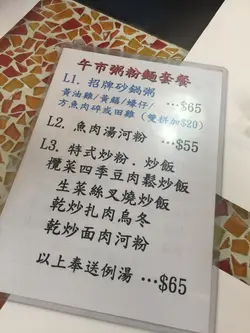 午市粥粉麵套餐
L1. 招牌砂鍋粥
黃油雞/黃鱔/蠔仔/ …$65
方魚肉碎或田雞 (雙拼加$20)
L2. 魚肉湯河粉 …$55
L3. 特式炒粉．炒飯
欖菜四季豆肉鬆炒飯
生菜絲叉燒炒飯
乾炒扎肉烏冬
乾炒面肉河粉
以上奉送例湯 …$65